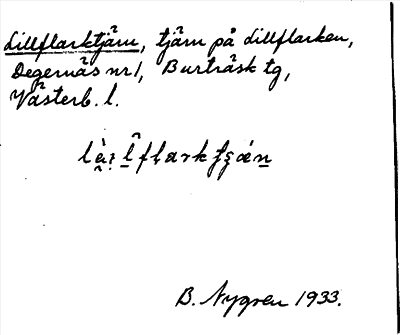 Lillflarktjärn, tjärn på Lillflarken,
Degernäs nr 1, Burträsk tg,
Västerb. l.
B. Nygren 1933.